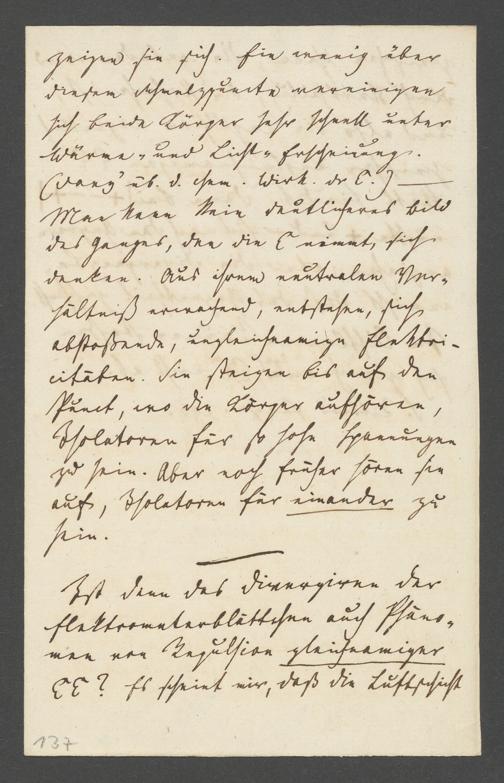 zeigen sie sich. Ein wenig über
diesem Schmelzpuncte vereinigen
sich beide Körper sehr schnell unter
Wärme- und Licht-Erscheinung.
(Davy üb. d. chem. Wirk. der E.) —
Man kann kein deutlicheres Bild
des Ganges, den die E nimmt, sich
denken. Aus ihrem neutralen Ver-
hältniß erwachend, entstehen, sich
abstoßende, ungleichnamige Elektri-
citäten. Sie steigen bis auf den
Punct, wo die Körper aufhören,
Isolatoren für so hohe Spannungen
zu sein. Aber noch früher hören sie
auf, Isolatoren für einander zu
sein.
Ist denn das Divergiren der
Elektrometerblättchen auch Phäno-
men von Repulsion gleichnamiger
EE? Es scheint mir, daß die Luftschicht
137